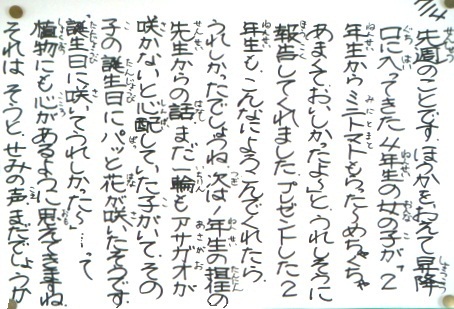 7/4
先週のことです。ほうかをおえて昇降
口に入ってきた4年生の女の子が「2
年生からミニトマトもらった〜めちゃくちゃ
あまくておいしかったよ〜とうれしそうに
報告してくれました。プレゼントした2
年生も、こんなによろこんでくれたら、
うれしかったでしょうね。次は1年生の担任の
先生からの話。まだ一輪もアサガオが
咲かないと心配していた子がいて、その
子の誕生日にパッと花が咲いたそうです。
誕生日に咲いてうれしかった〜」…って
植物にも心があるように思えてきますね
それはそうと、せみの声まだでしょうか